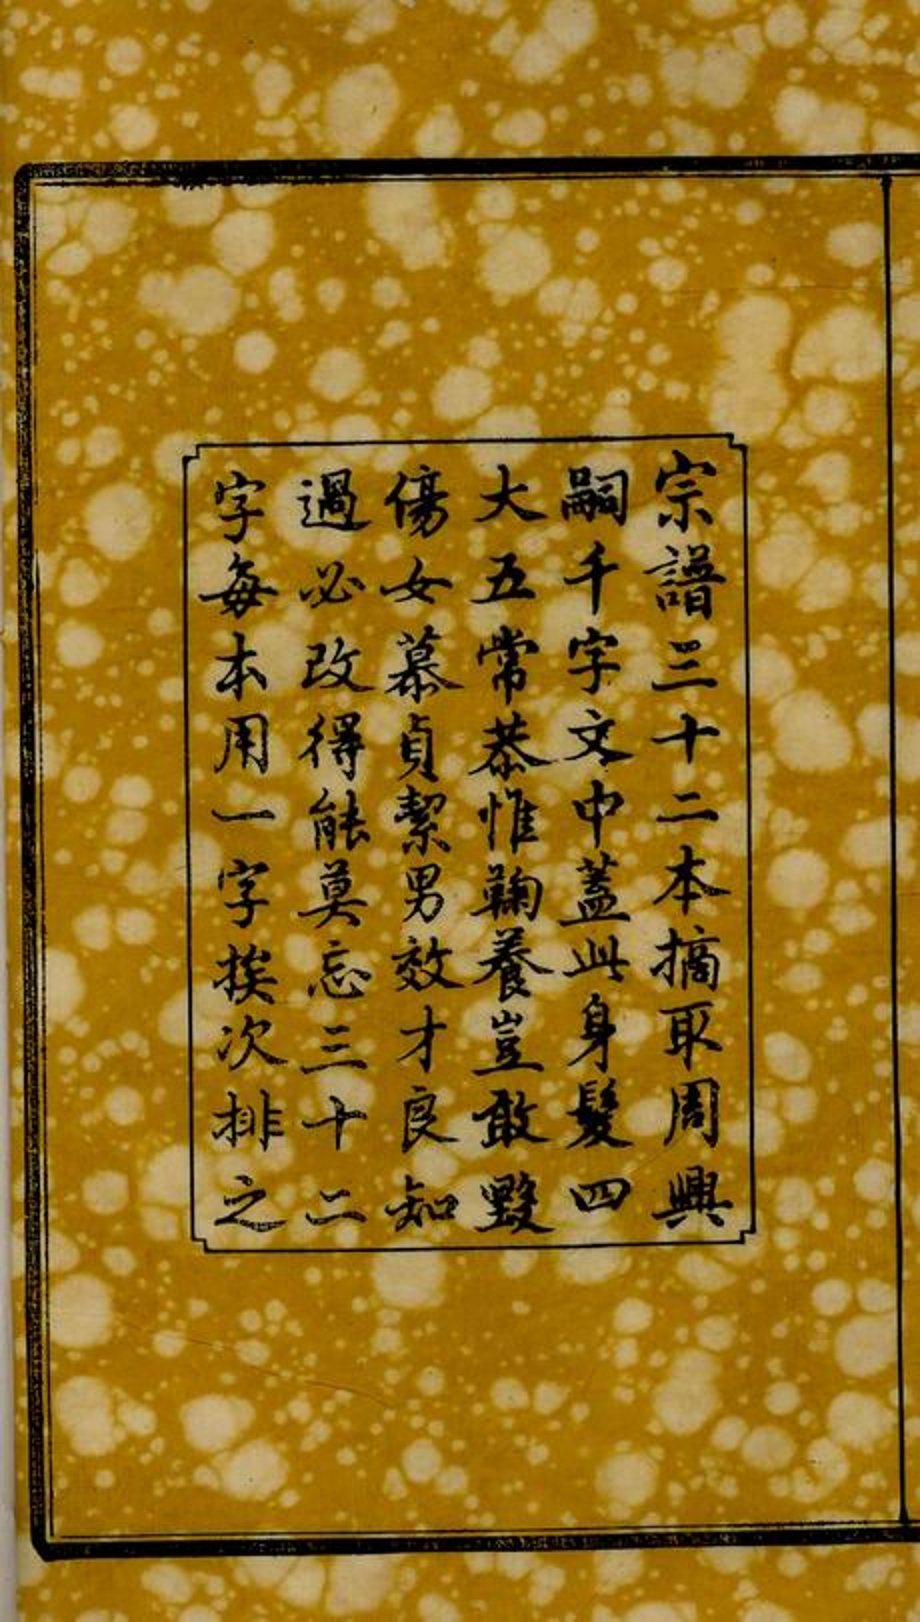 宗譜三十二本摘取周興
嗣千字文中蓋此身髮四
大五常恭惟鞠養豈敢毀
傷女慕貞絜男效才良知
過必改得能莫忘三十二
字每本用一字挨次排之